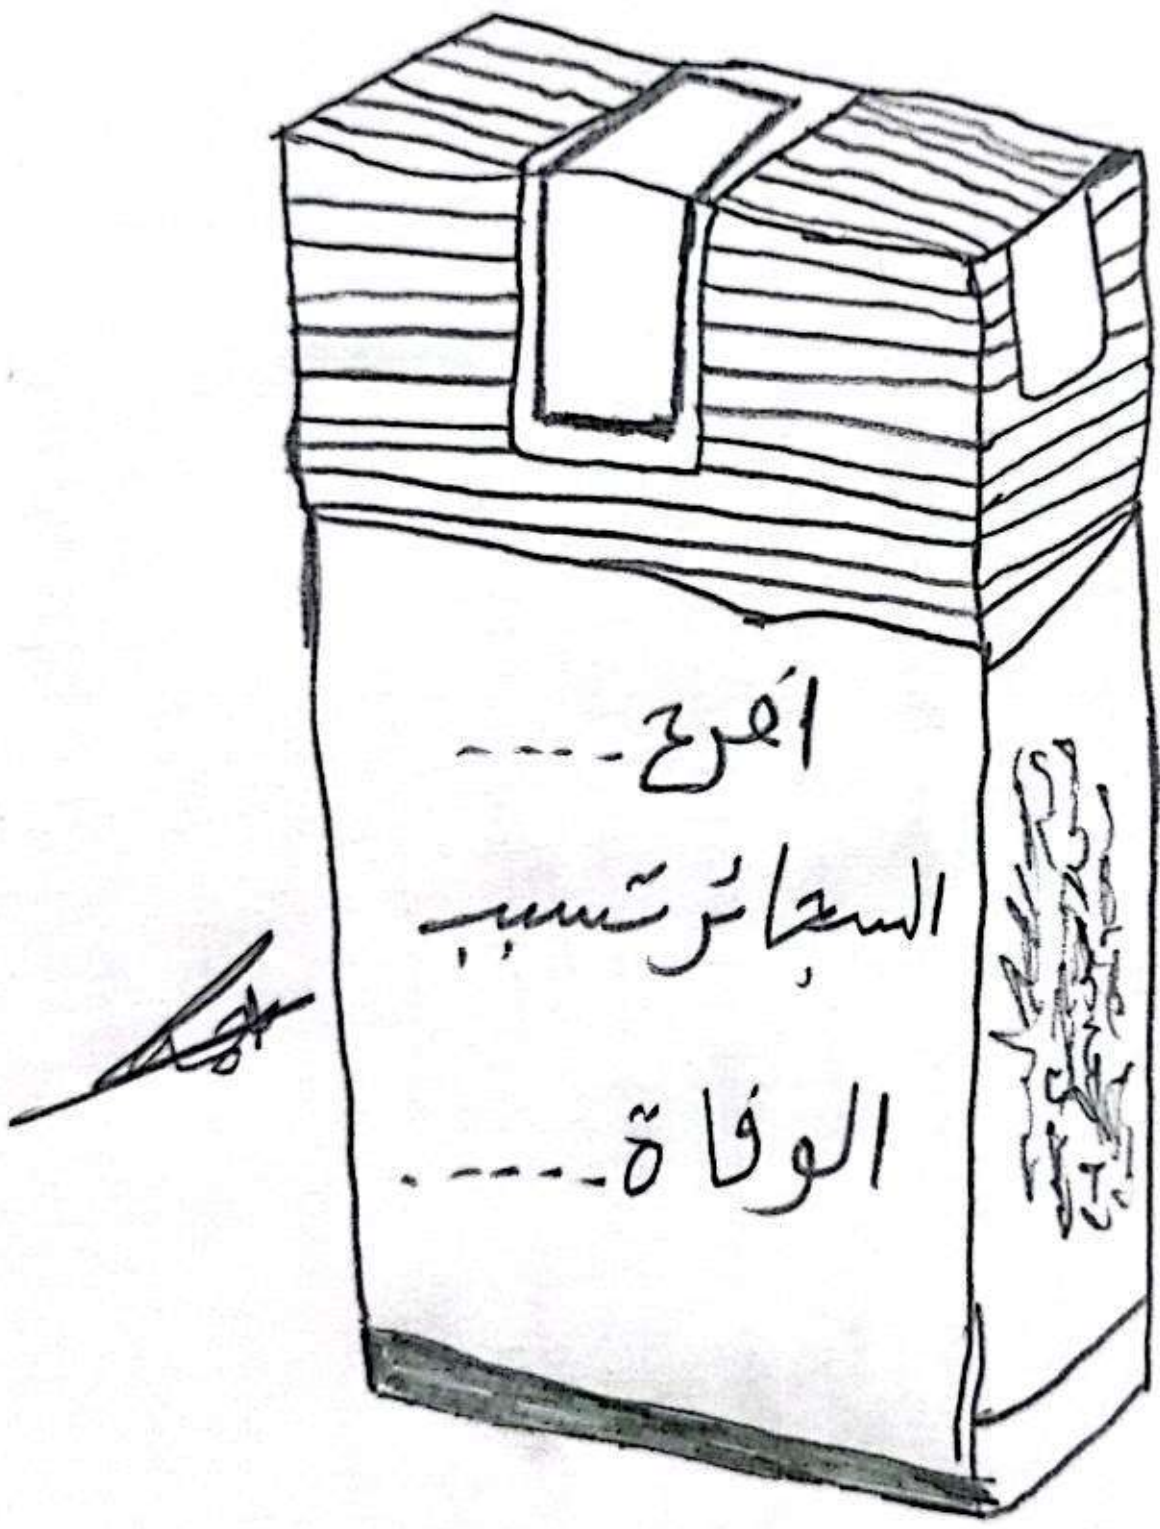 افرح----
السجائر تسبب
الوفاة-----.